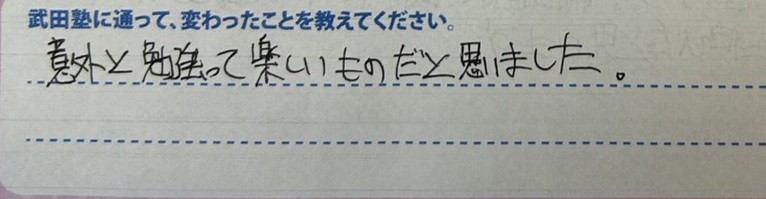 武田塾に通って、変わったことを教えてください。
意外と勉強って楽しいものだと思いました。